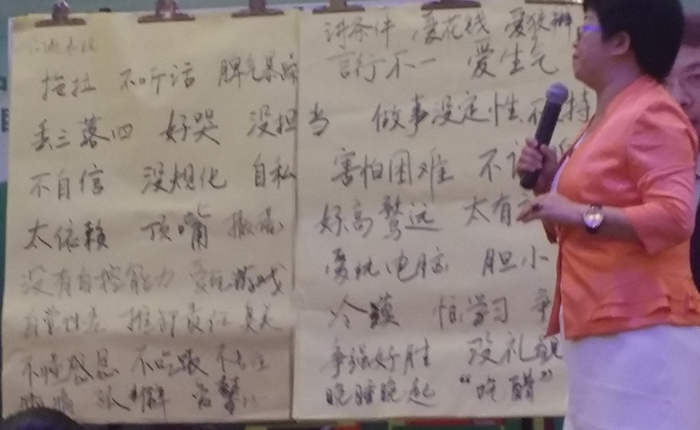 拖拉 不听话 脾气暴躁
丢三落四 好哭 没担当
不自信 没规化 自私
太依赖 顶嘴 撒谎
没有自控能力 爱玩游戏
自觉性差 推卸责任
不懂感恩 不吃
讲条件 爱花钱 爱狡辩
言行不一 爱生气
做事没定性 不 持
害怕困难 不
好高骛远 太有
爱玩电脑 胆小
冷漠 怕学习 争
争强好胜 没礼貌
晚睡晚起 “吃醋”